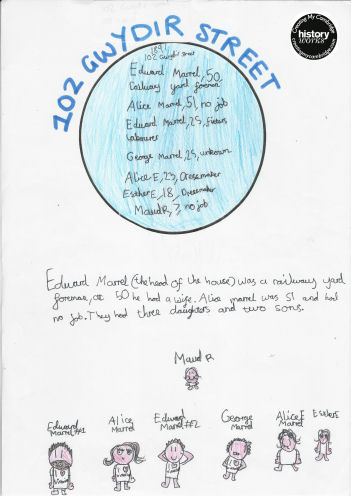 102 GWYDIR STREET
Capturing Cambridge
history
WORKS
102 Gwydir Street
Edward Marrel, 50,
Railway yard foreman
Alice Marrel, 51, no job
Edward Marrel, 25,
Labourer
George Marrel, 25, unknown
Alice E, 23, Dressmaker
Esther E, 18, Dressmaker
Maud R, 7, no job
Edward Marrel (the head of the house) was a railways yard
foreman, at 50 he had a wife. Alice marrel was 51 and had
no job. They had three daughters and two sons.
Maud R
Edward
Marrel #1
Alice
Marrel
Edward
Marrel #2
George
Marrel
Alice E
Marrel
Esther E